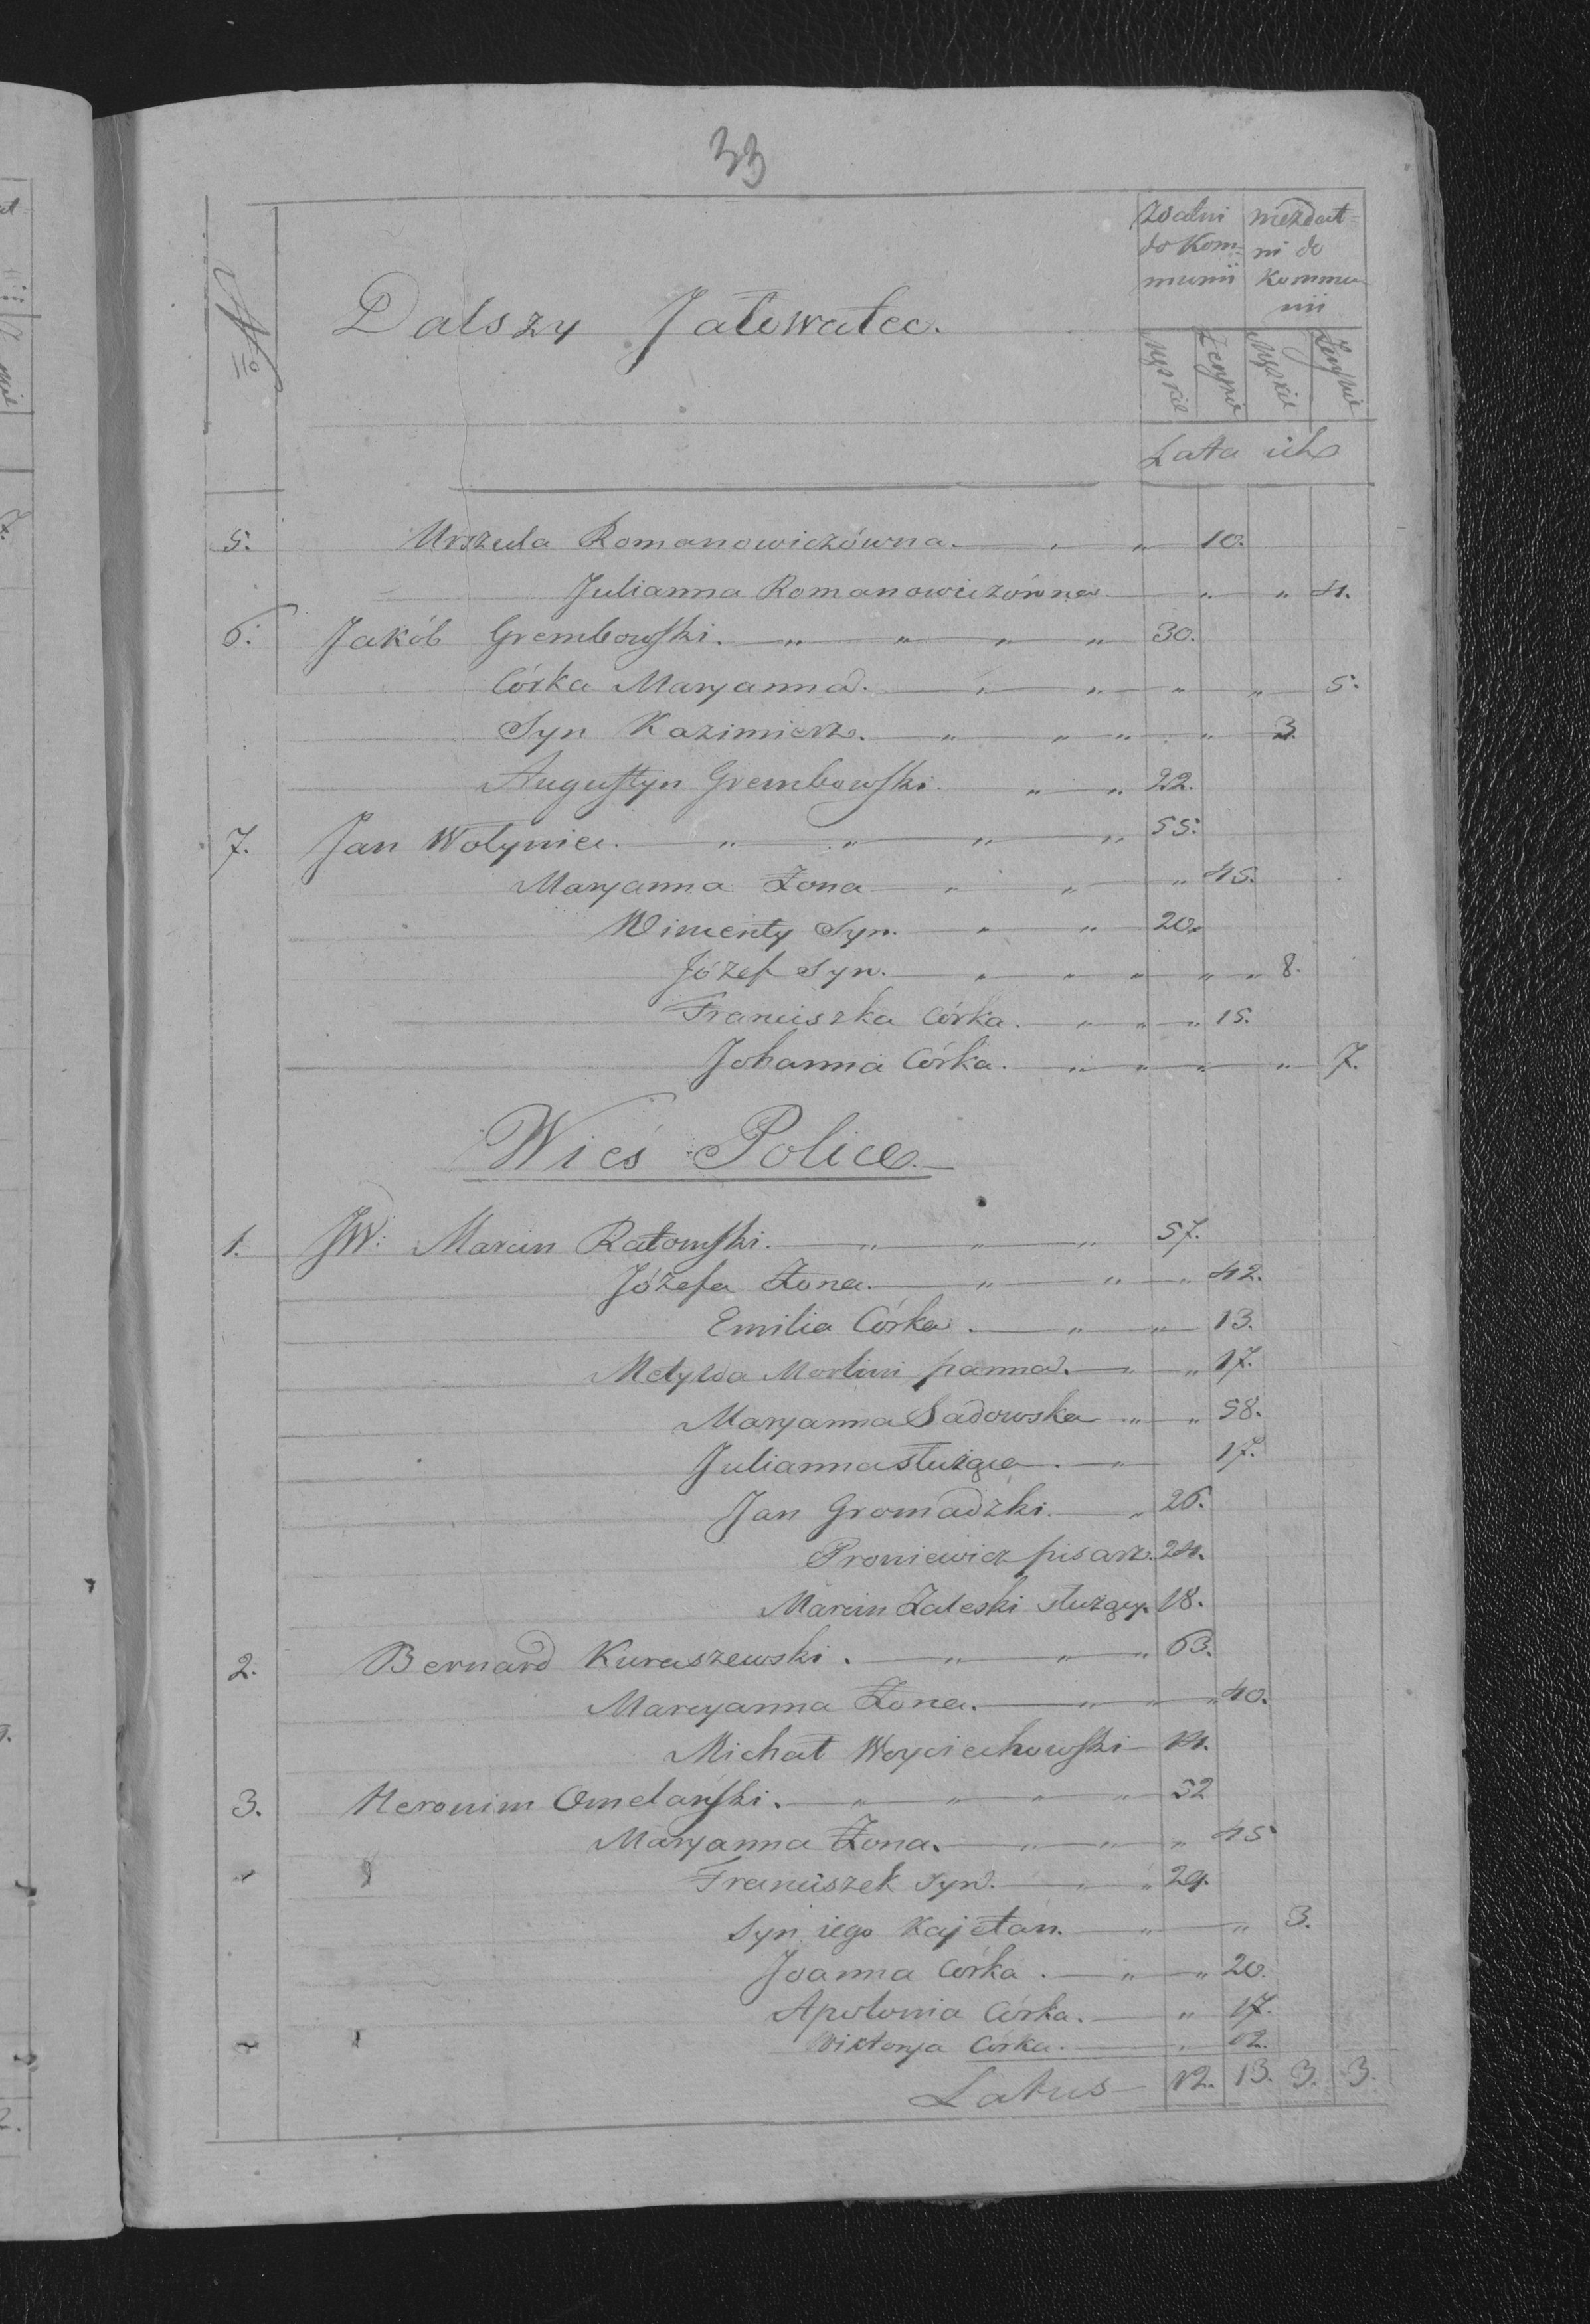 33
№
Dalszy Jałowałec.
Zdatni do Kom= munii
niezdat= ni do Kommu nii
Męzkie Żeńskie Męzkie Żeńskie
Lata ich
5. Urszula Romanowiczówna. " " 10.
Julianna Romanowiczówna " " 4.
6. Jakób Grembowski. " " " " 30.
Córka Maryanna. " " " " 5.
Syn Kazimierz. " " " " 3.
Augustyn Grembowski. " " 22.
7. Jan Wołyniec. " " " " 55.
Maryanna Żona " " " 45.
Wincenty Syn. " " 20.
Józef Syn. " " " " " 8.
Franciszka Córka. " " " 15.
Johanna Córka. " " " " 7.
Wieś Police.
1. JW: Marcin Ratomski. " " " 57.
Józefa Żona. " " " 42.
Emilia Córka. " " 13.
Metylda Morlini panna. " " 17.
Maryanna Sadowska " " 58.
Julianna służąca. " 17.
Jan Gromadzki. " 26.
Proniewicz pisarz. 24.
Marcin Zaleski służący. 18.
2. Bernard Kuraszewski. " " " 63.
Maryanna Żona. " " " 40.
Michał Woyciechowski 14.
3. Heronim Omelański. " " " " 52
Maryanna Żona. " " " 45
Franciszek Syn. " " 29.
Syn iego Kajetan. " " 3.
Joanna Córka. " " 20.
Apolonia Córka. " 17.
Wiktorya Córka. " 12.
Latus 12. 13. 3. 3.